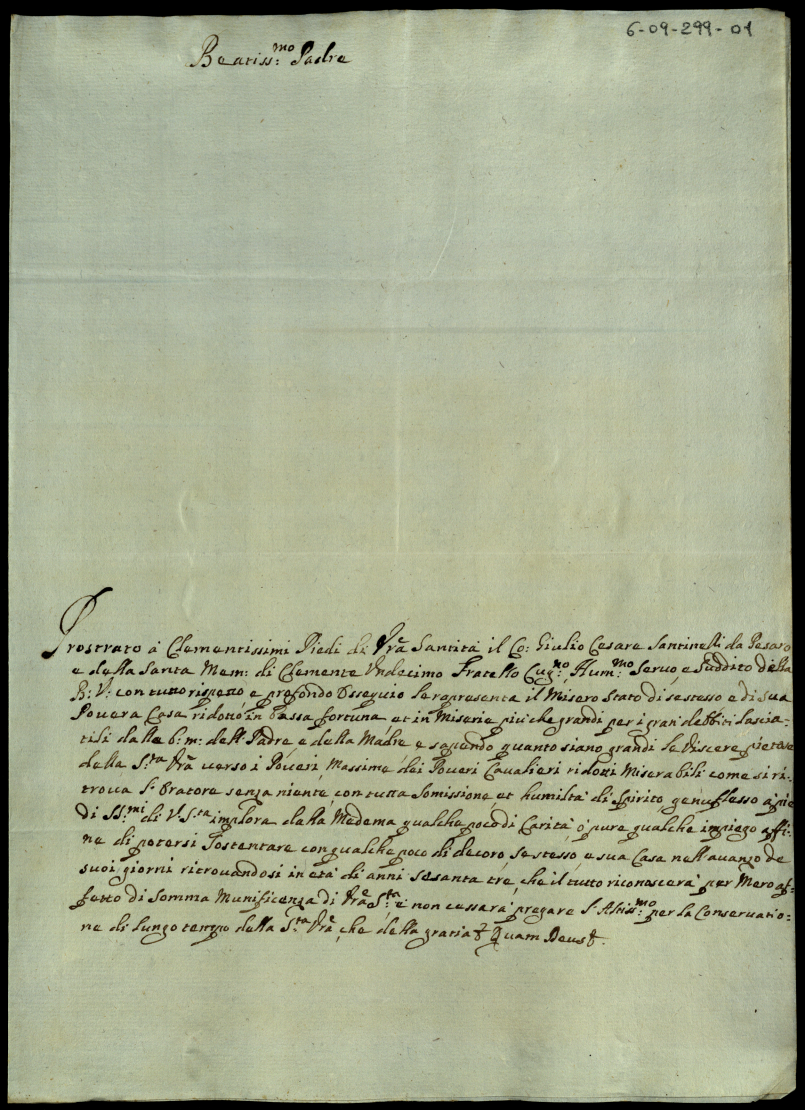 6-09-299-01
Beatiss:mo Padre
Prostrato à Clementissimi Piedi di Vrã Santità il Co: Giulio Cesare Santinelli da Pesaro
e della Santa Mem: di Clemente Undecimo Fratello Cug:no, Hum:mo Servo, e Suddito della
S: V: con tutto rispetto e profondo Ossequio le rapresenta il Misero Stato di se stesso e di Sua
Povera Casa ridotto in bassa fortuna et in Miserie più che grandi per i gran debbiti lascia-
tili dalla b: m: dell Padre, e della Madre, e sapendo quanto siano grandi le Viscere pietose
della S:tà Vrã verso i Poveri, Massime dei Poveri Cavalieri ridotti Miserabili come si ri-
trova l'Oratore senza niente, con tutta Somissione, et humiltà di Spirito genuflesso a pie
di SS:mi di V: S:tà implora dalla Medema qualche poco di Carità ò pure qualche impiego affi-
ne di potersi Sostentare con qualche poco di decoro se stesso, e sua Casa nell'avanzo de
suoi giorni ritrovandosi in età di anni sesanta tre, che il tutto riconoscerà per Mero af-
fetto di Somma Munificenza di Vrã S:tà e non cessarà pregare l'Altiss:mo per la Conservatio-
ne di lungo tempo della S:tà Vrã, che della gratia Quam Deus